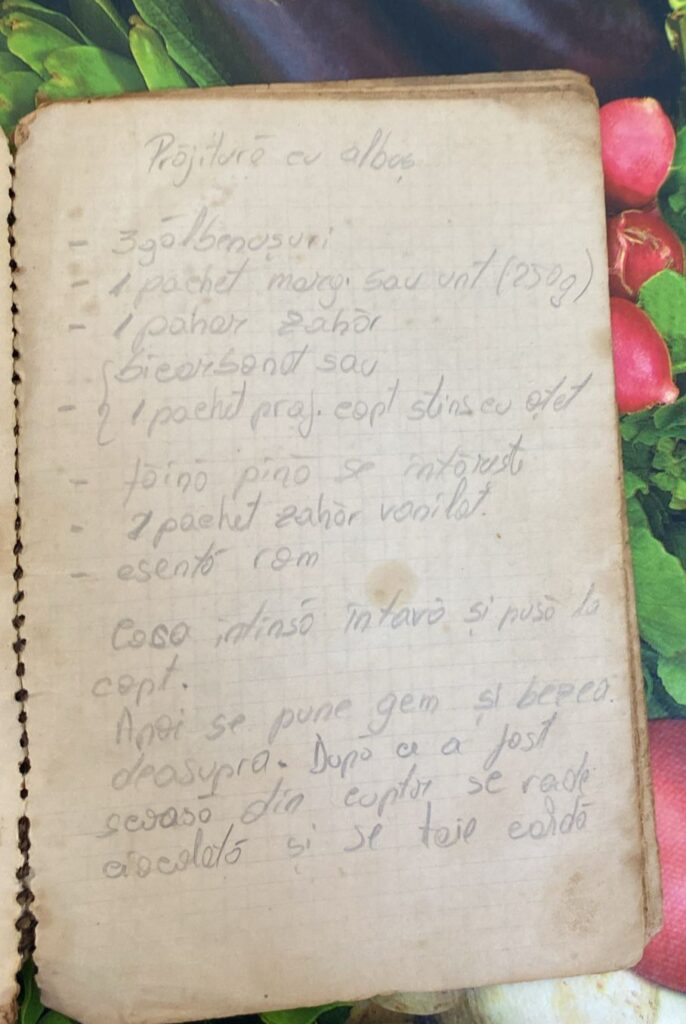 Prăjitură cu albuș
- 3 gălbenușuri
- 1 pachet marg. sau unt (250g)
- 1 pahar zahăr
bicarbonat sau
- 1 pachet praj. copt stins cu oțet
- făină pînă se întărește
- 1 pachet zahăr vanilat.
- esență rom
Coca întinsă în tavă și pusă la
copt.
Apoi se pune gem și bezea
deasupra. După ce a fost
scoasă din cuptor se rade
ciocolată și se taie caldă